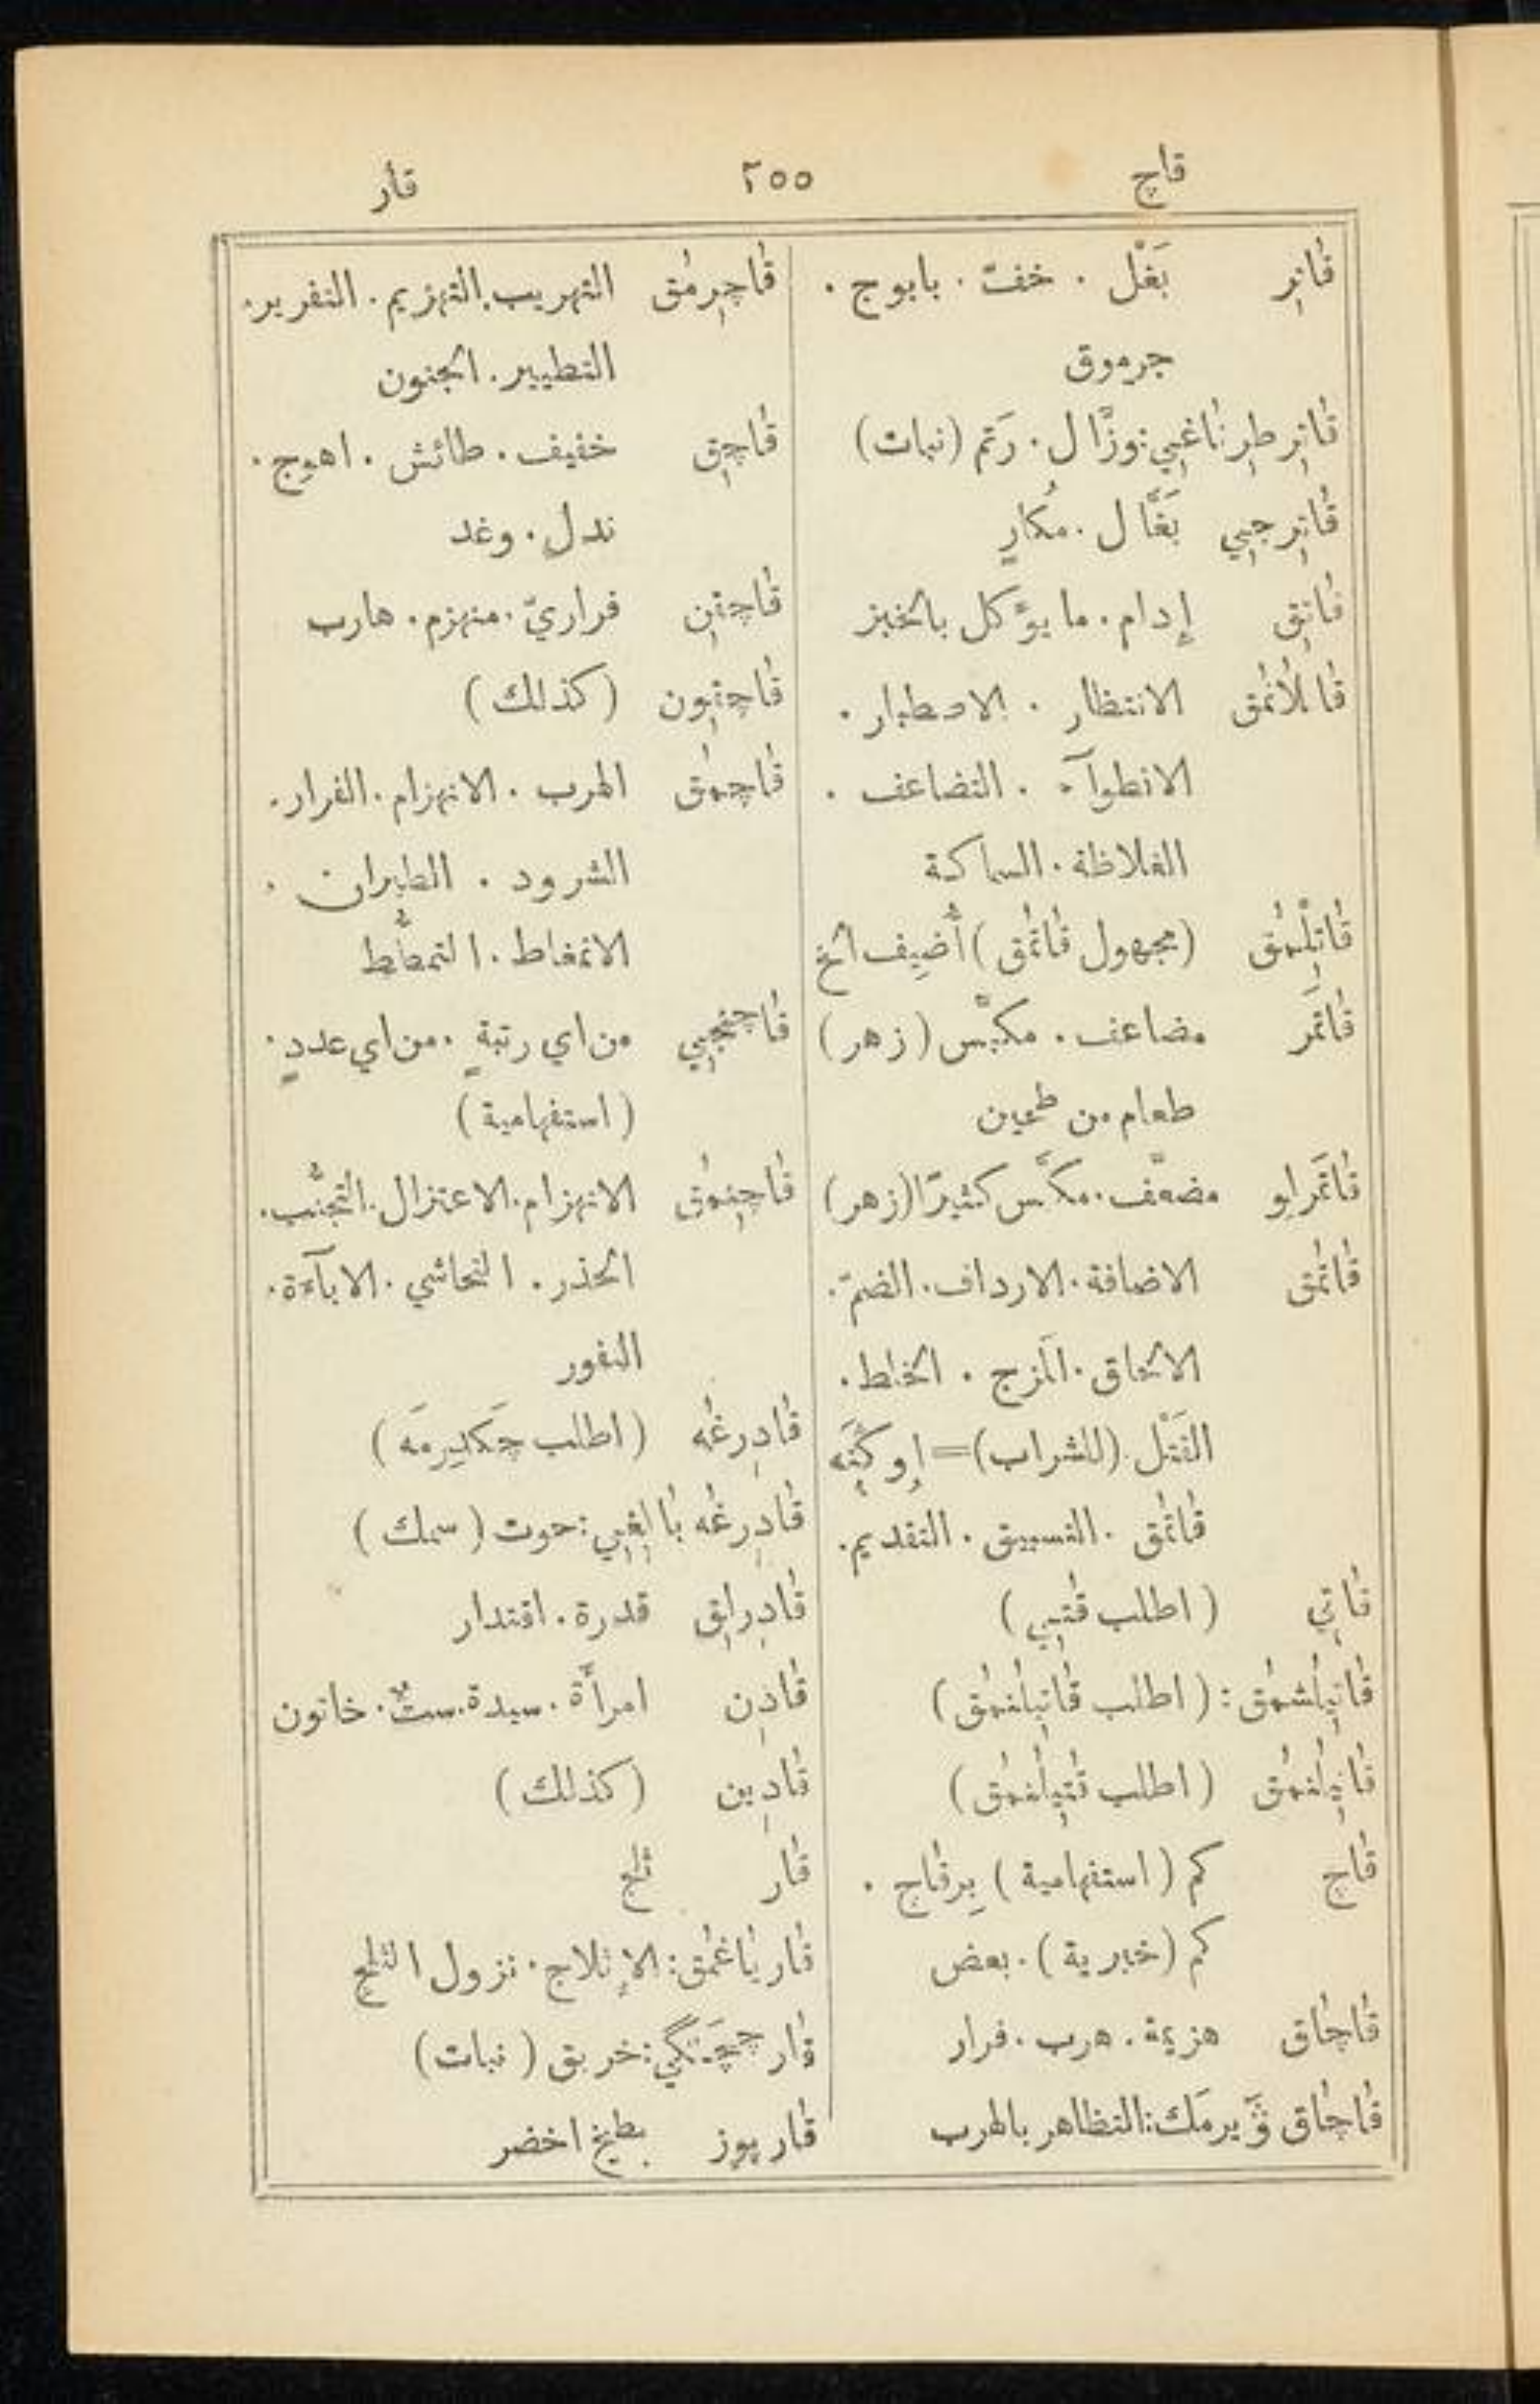 قاچ ٢٥٥ قار
قَاتِر بَغْل . خفّ . بابوج .
جرموق
قَاتِر طِرنَاغيِي : وزَّال . رَتم (نبات)
قَاتِرجِيي بَغَّال . مُكارٍ
قَاتِق إدام . ما يؤكل بالخبز
قَاتلَانمُق الانتظار . الاصطبار .
الانطوآء . التضاعف .
الغلاظة . السماكة
قَاتِلْمُق (مجهول قَاتمُق) أُضِيف الخ
قَاتمَر مضاعف . مكبّس (زهر)
طعام من طحين
قَاتمَرلِو مضعّف . مكبّس كثيرًا (زهر)
قَاتمُق الاضافة . الارداف . الضمّ .
الالحاق . المَزج . الخلط .
القَتْل (للشراب) = اِوكنَه
قَاتمُق . التسبيق . التقديم .
قَاتِي (اطلب قَتيِي)
قَاتِيلَشمُق : (اطلب قَاتِيلَنمُق)
قَاتِيلَنمُق (اطلب قَتِيلَنمُق)
قَاچ كم (استفهامية) بِرقَاچ .
كم (خبرية) . بعض
قَاچَاق هزيمة . هرب . فرار
قَاچَاق ڤَيرمَك : التظاهر بالهرب
قَاچِرمُق التهريب . التهزيم . التفرير .
التطيير . الجنون
قَاچِق خفيف . طائش . اهوج .
ندل . وغد
قَاچقِن فراريّ . منهزم . هارب
قَاچقِون (كذلك)
قَاچمُق الهرب . الانهزام . الفرار .
الشرود . الطيران .
الانمغاط . التمطُّط
قَاچنجِيي من اي رتبةٍ . من اي عددٍ .
(استفهامية)
قَاچِنمُق الانهزام . الاعتزال . التجنُّب .
الحذر . التحاشي . الابآءة .
النفور
قَادِرغُه (اطلب چَكدِيرمَه)
قَادِرغُه بَالِغيِي : حوت (سمك)
قَادِرلِق قدرة . اقتدار
قَادِن امرأَة . سيدة . ستّ . خاتون
قَادِين (كذلك)
قَار ثلج
قَار يَاغمُق : الإثلاج . نزول الثلج
قَار چيچَكي : خربق (نبات)
قَارپوز بطيخ اخضر